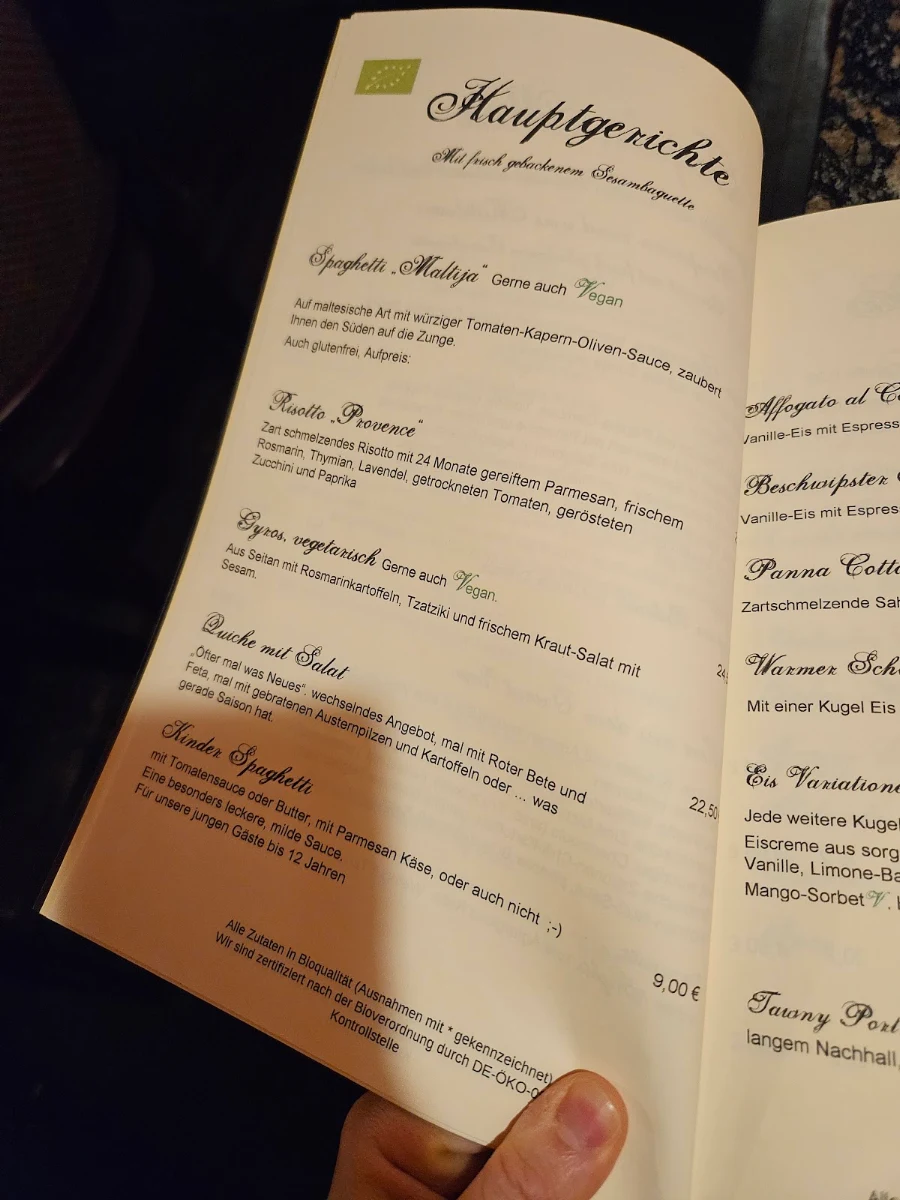 Hauptgerichte
Mit frisch gebackenem Sesambaguette
Spaghetti „Maltija“ Gerne auch Vegan
Auf maltesische Art mit würziger Tomaten-Kapern-Oliven-Sauce, zaubert
Ihnen den Süden auf die Zunge.
Auch glutenfrei, Aufpreis:
Risotto „Provence“
Zart schmelzendes Risotto mit 24 Monate gereiftem Parmesan, frischem
Rosmarin, Thymian, Lavendel, getrockneten Tomaten, gerösteten
Zucchini und Paprika
Gyros, vegetarisch Gerne auch Vegan.
Aus Seitan mit Rosmarinkartoffeln, Tzatziki und frischem Kraut-Salat mit
Sesam.
24,
Quiche mit Salat
„Öfter mal was Neues“. wechselndes Angebot, mal mit Roter Bete und
Feta, mal mit gebratenen Austernpilzen und Kartoffeln oder ... was
gerade Saison hat.
22,50
Kinder Spaghetti
mit Tomatensauce oder Butter, mit Parmesan Käse, oder auch nicht ;-)
Eine besonders leckere, milde Sauce.
Für unsere jungen Gäste bis 12 Jahren
9,00 €
Alle Zutaten in Bioqualität (Ausnahmen mit * gekennzeichnet)
Wir sind zertifiziert nach der Bioverordnung durch DE-ÖKO-0
Kontrollstelle
Affogato al
Vanille-Eis mit Espress
Beschwipster
Vanille-Eis mit Espres
Panna Cotta
Zartschmelzende Sah
Warmer Sch
Mit einer Kugel Eis
Eis Variatione
Jede weitere Kugel
Eiscreme aus sorg
Vanille, Limone-Ba
Mango-Sorbet V.
Tawny Port
langem Nachhall,